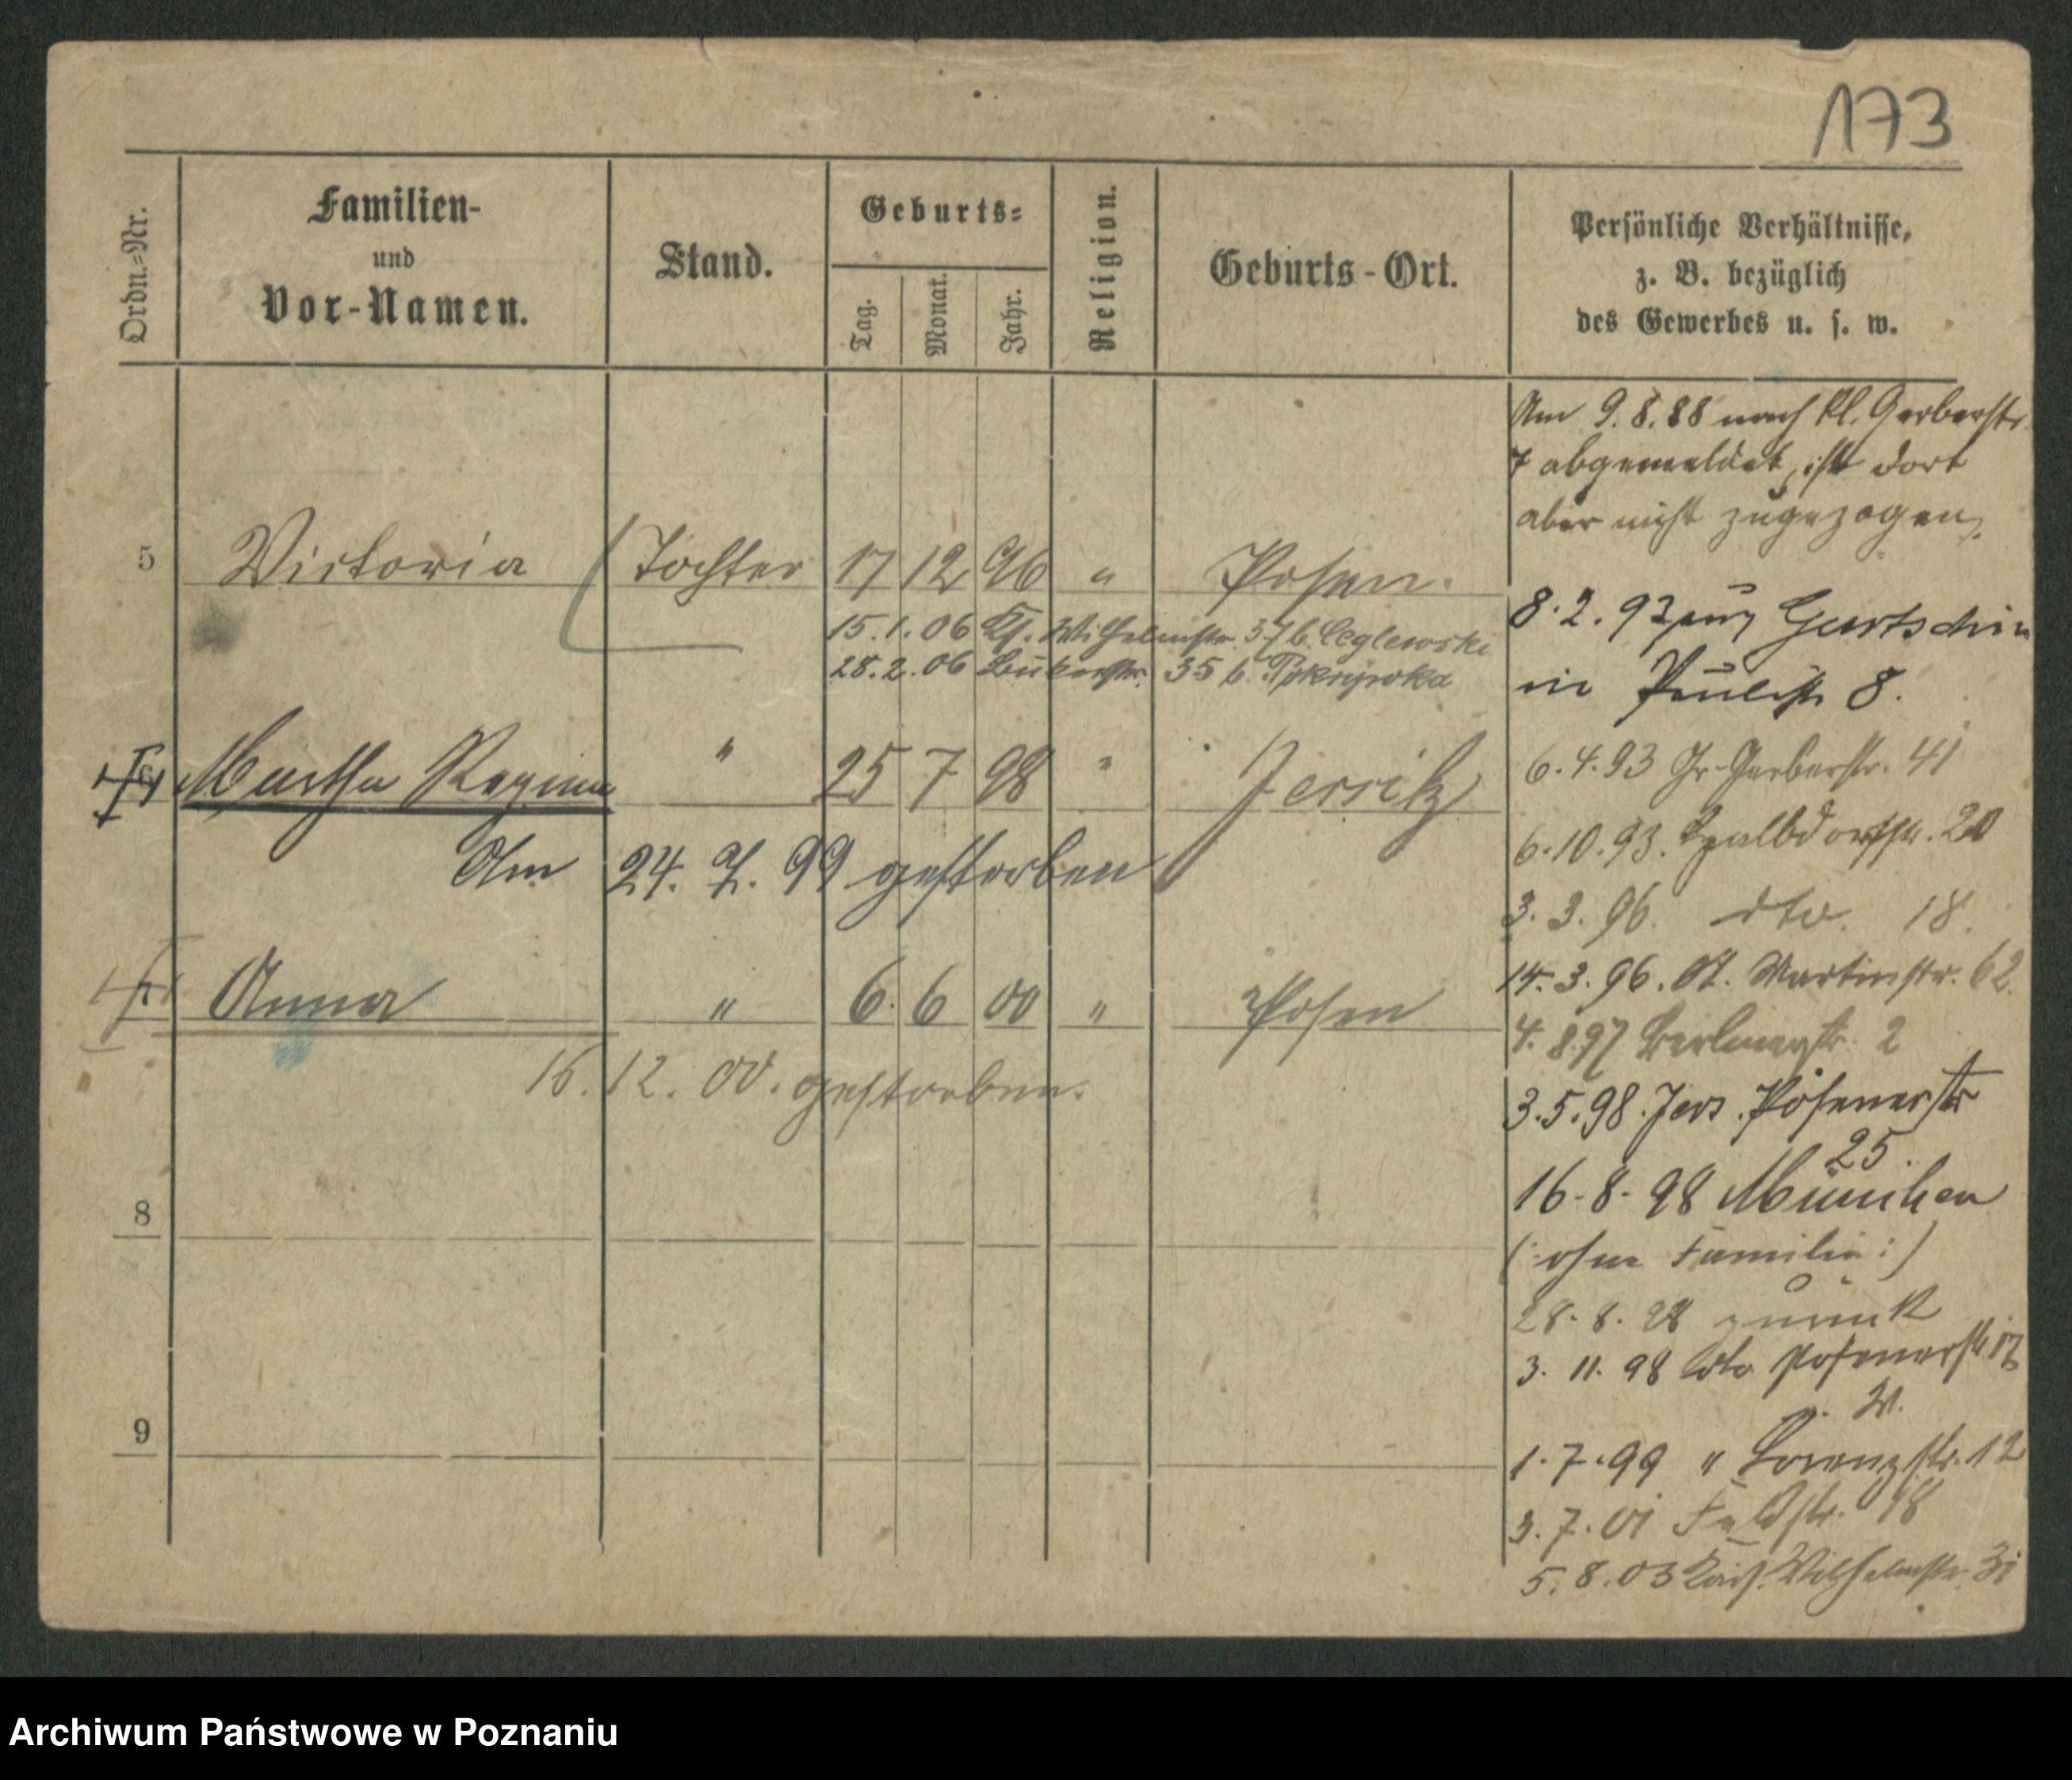 173
Ordn.-Nr.
Familien-
und
Vor-Namen.
Stand.
Geburts-
Tag.
Monat.
Jahr.
Religion.
Geburts-Ort.
Persönliche Verhältnisse,
z. B. bezüglich
des Gewerbes u. s. w.
Am 9.8.88 nach Kl. Gerberstr.
7 abgemeldet, ist dort
aber nicht zugezogen.
5 Victoria Tochter 17 12 96 " Posen.
15.1.06 Wilhelmstr. 37 b. Ceglewski
28.2.06 Bukerstr. 35 b. Pokrywka
8.2.93 aus Gurtschin
in Paulistr. 8.
Martha Regina " 25 7 98 " Jersitz
6.4.93 Gr. Gerberstr. 41
Am 24. 7. 99 gestorben
6.10.93. 20
3.3.96. dto. 18.
Anna " 6. 6 00 " Posen
14.3.96. St. Martinstr. 62.
4.8.97 Berlinerstr. 2
16. 12. 00. gestorben.
3.5.98. Jers. Posenerstr
25.
8
16.8.98 München
(: ohne Familie :)
28.8.98 zurück
3.11.98 dto Posenerstr
9
1.7.99 " Lorenzstr. 12
3.7.01 Feldstr. 18
5.8.03 Kais. Wilhelmstr. 31
Archiwum Państwowe w Poznaniu